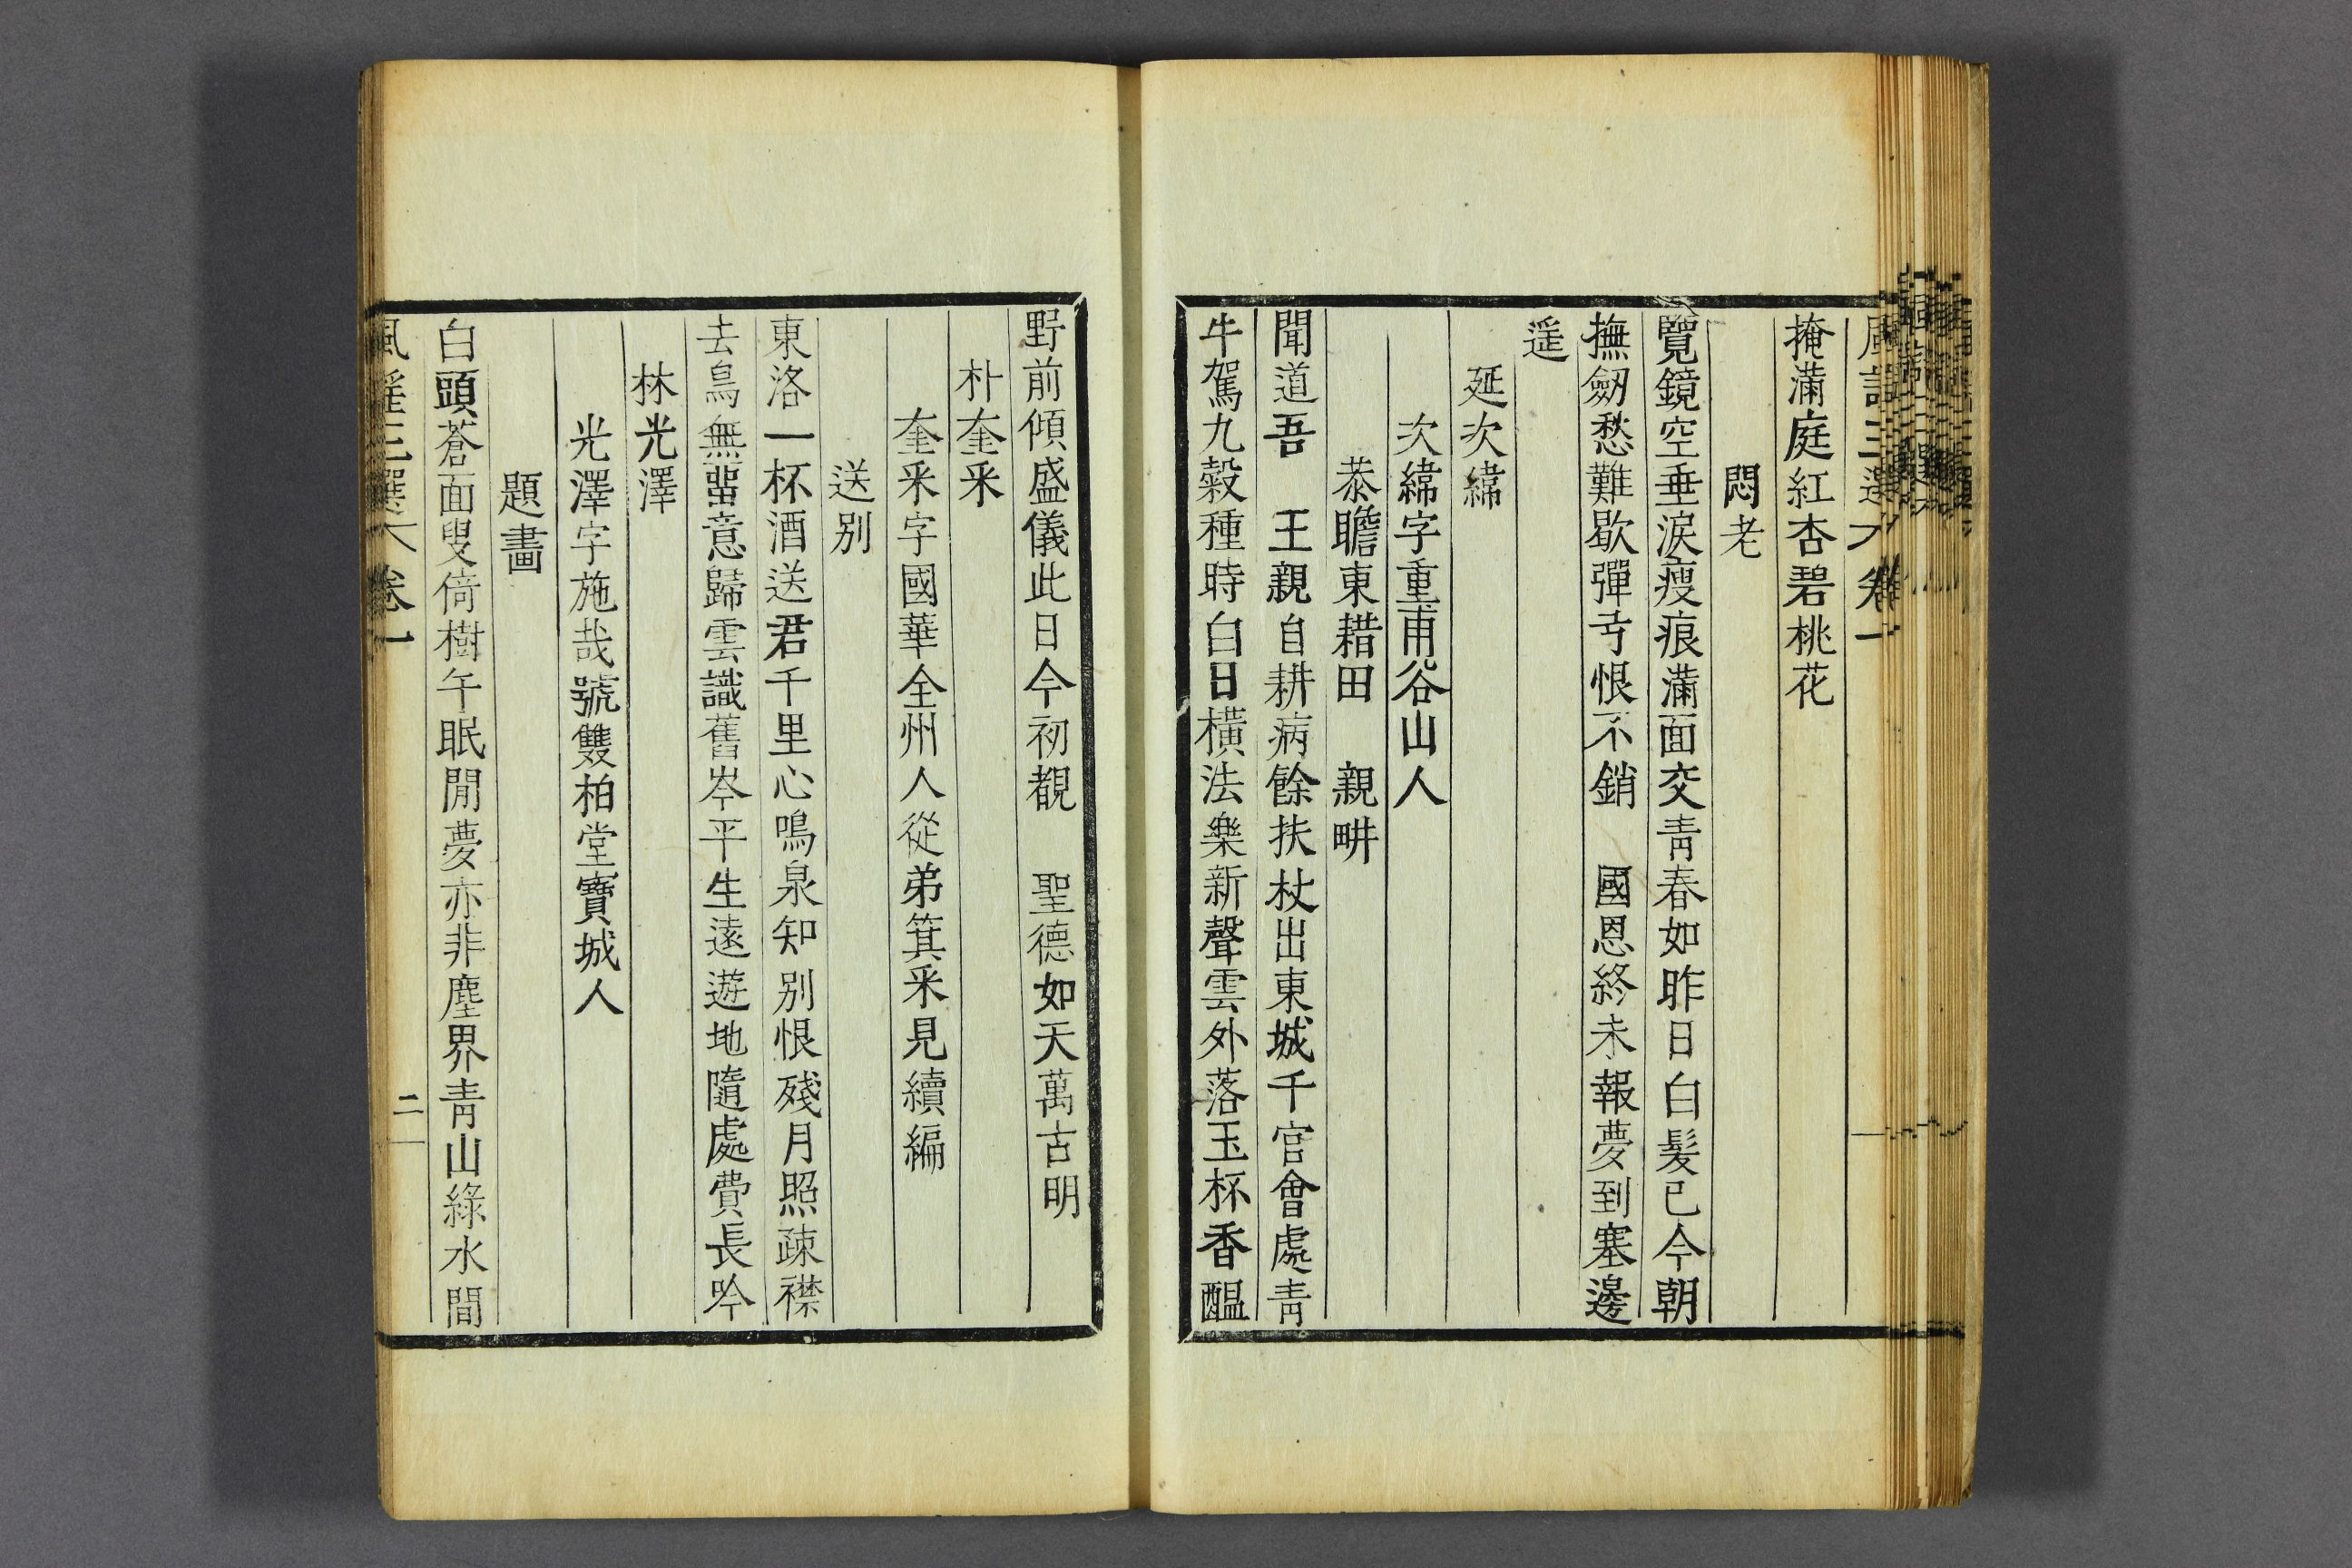 掩滿庭紅杏碧桃花
悶老
覽鏡空垂淚瘦痕滿面交靑春如昨日白髮已今朝
撫劒愁難歇彈丂恨不銷　國恩終未報夢到塞邊
遥
延次緯
次緯字重甫谷山人
恭瞻東耤田　親畊
聞道吾　王親自耕病餘扶杖出東城千官會處靑
牛駕九穀種時白日橫法樂新聲雲外落玉杯香醖
野前傾盛儀此日今初覩　聖德如天萬古明
朴奎采
奎采字國華全州人從弟箕采見續編
送別
東洛一杯酒送君千里心鳴泉知別恨殘月照疎襟
去鳥無畱意歸雲識舊岑平生遠遊地隨處費長吟
林光澤
光澤字施哉號雙柏堂寶城人
題畫
白頭蒼面叟倚樹午眠閒夢亦非塵界靑山綠水間
風謠三選 卷一 二